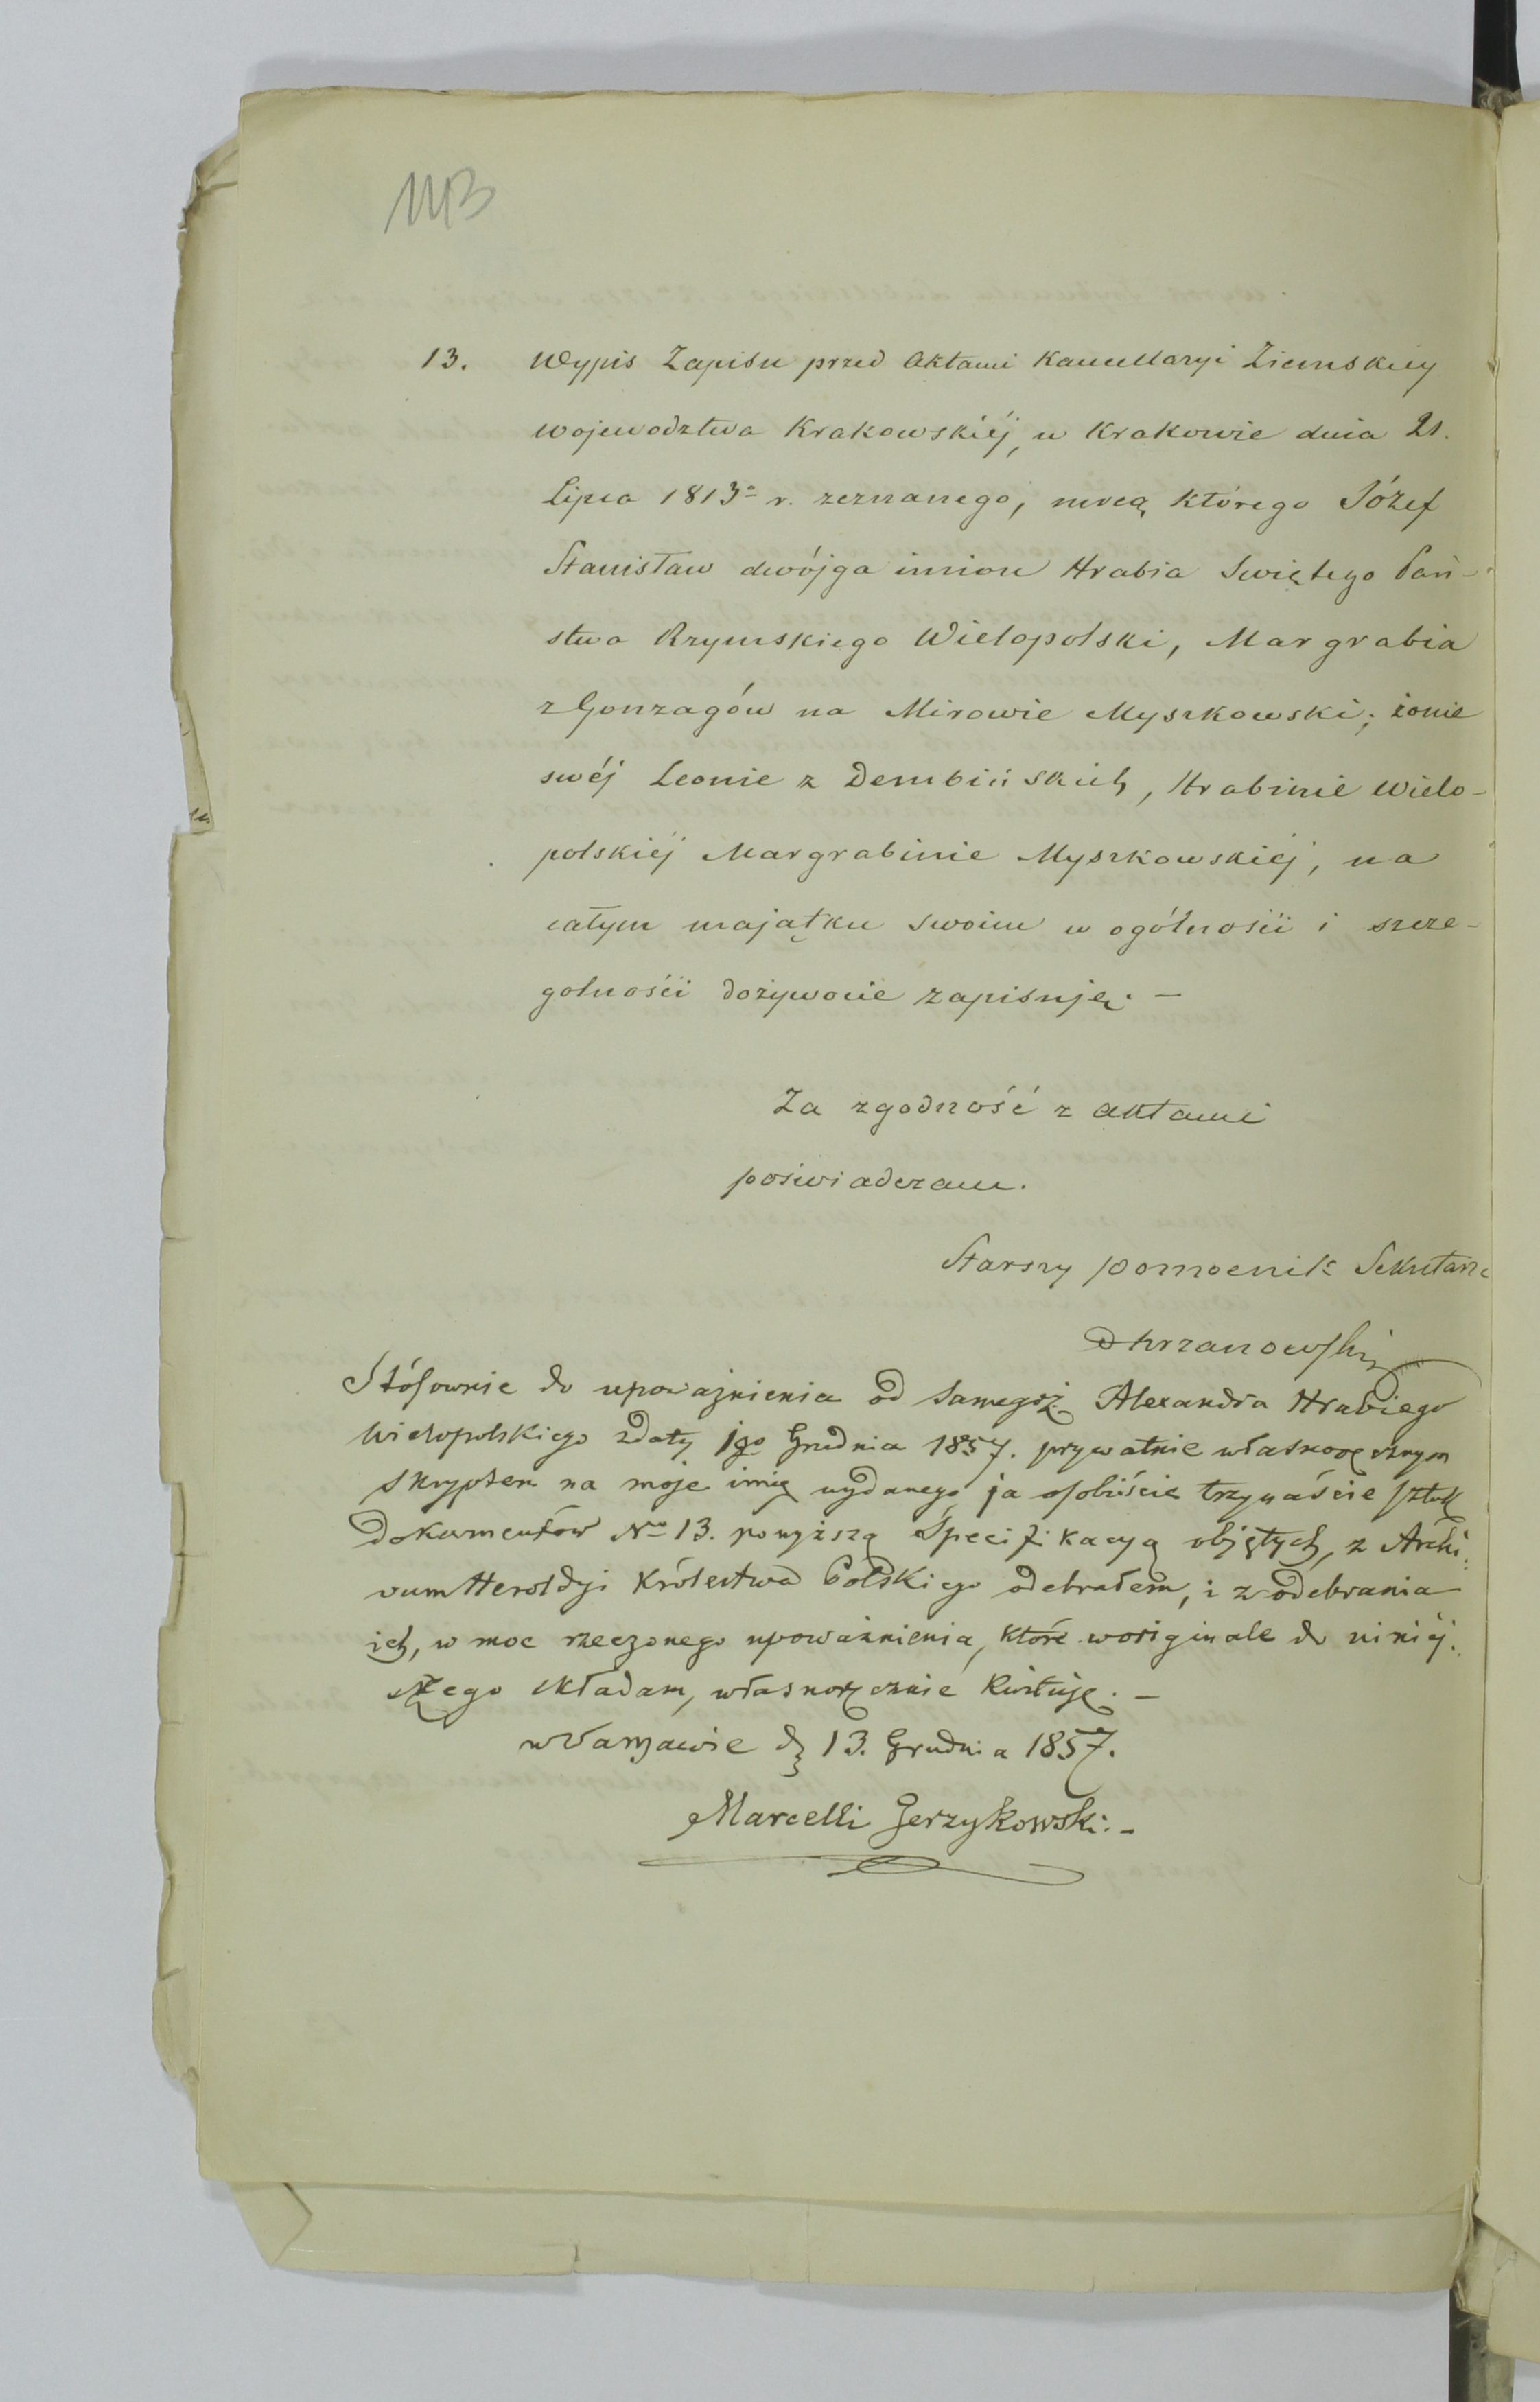 113
13. Wypis Zapisu przed Aktami Kancellaryi Ziemskiey
wojewodztwa Krakowskiéj, w Krakowie dnia 21.
Lipca 1813º r. zeznanego, mocą którego Józef
Stanisław dwójga imion Hrabia Swiętego Pań-
stwa Rzymskiego Wielopolski, Margrabia
z Gonzagów na Mirowie Myszkowski; żonie
swéj Leonie z Dembińskich, Hrabinie Wielo-
polskiéj Margrabinie Myszkowskiéj, na
całym majątku swoim w ogólności i szcze-
golności dożywocie zapisuję. —
Za zgodność z aktami
poświadczam.
Starszy pomocnik Sekretarza
Chrzanowski
Stósownie do upoważnienia od samegoż Alexandra Hrabiego
Wielopolskiego z daty 1go Grudnia 1857. prywatnie własnoręcznym
skryptem na moje imię wydanego, ja osobiście trzynaście sztuk
Dokumentów No 13. powyższą Specifikacyą objętych, z Archi-
vum Heroldji Królestwa Polskiego odebrałem, i z odebrania
ich, w moc rzeczonego upoważnienia, które w originale do niniéj-
szego składam, własnoręcznie kwituję. —
w Warszawie d. 13. Grudnia 1857.
Marcelli Jerzykowski. —